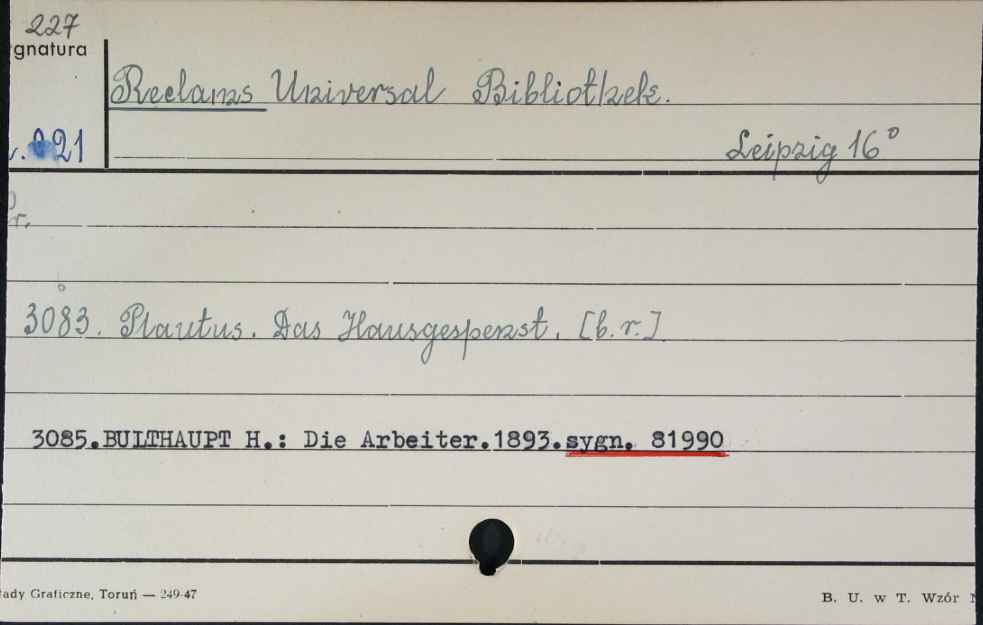 227
gnatura
Reclams Universal Bibliothek.
21
Leipzig 16°
r.
3083. Plautus. Das Hausgespenst. [b.r.]
3085.BULTHAUPT H.: Die Arbeiter.1893.sygn. 81990
ady Graficzne, Toruń — 249-47
B. U. w T. Wzór